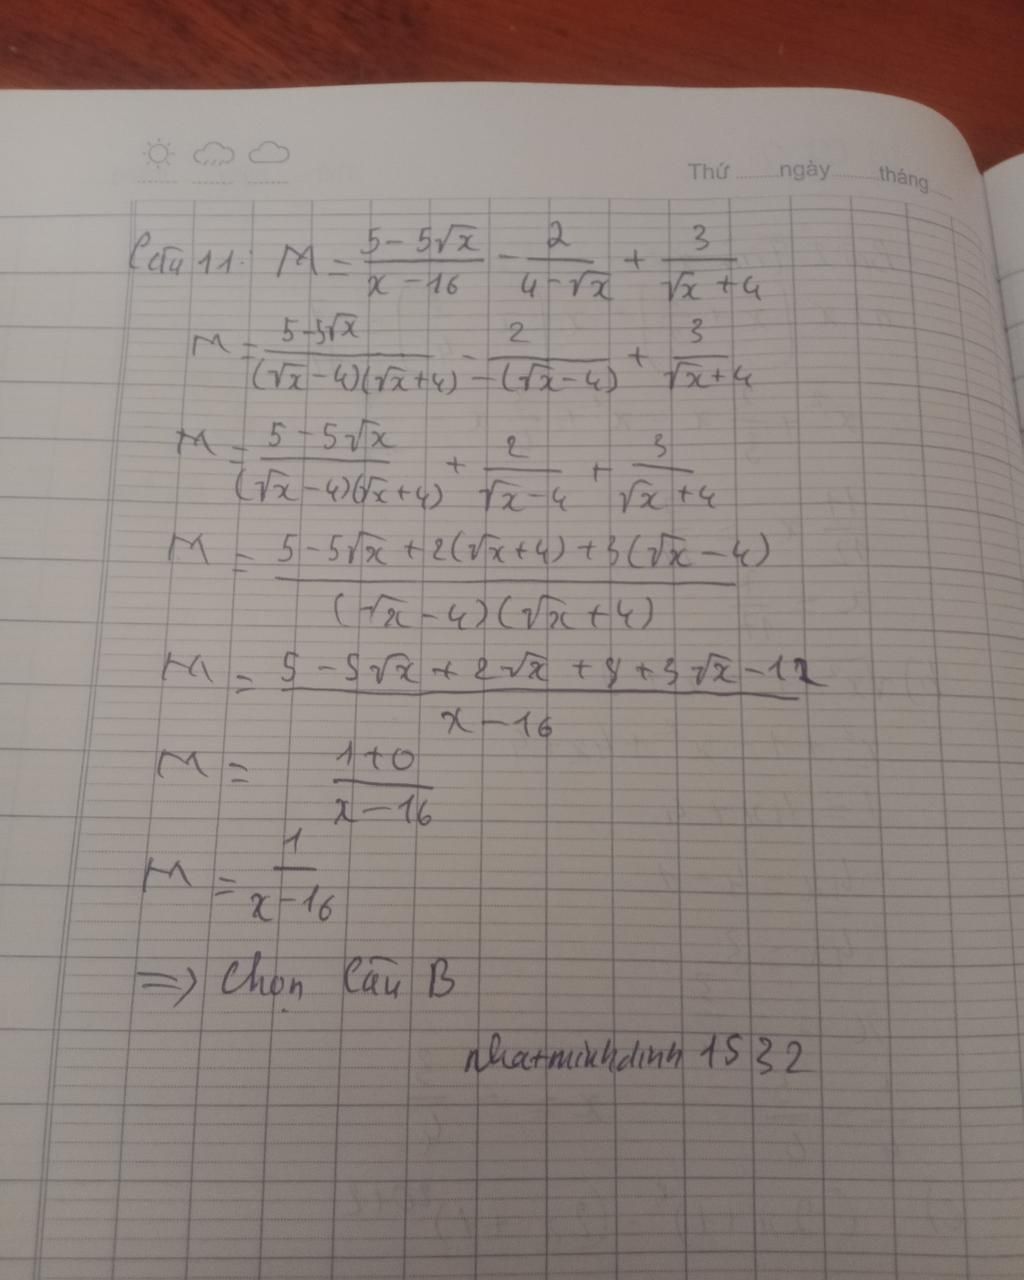 Thứ ........ngày........tháng....
Câu 11: M = (5 - 5√x)/(x - 16) - 2/(4 - √x) + 3/(√x + 4)
M = (5 - 5√x)/((√x - 4)(√x + 4)) - 2/(-(√x - 4)) + 3/(√x + 4)
M = (5 - 5√x)/((√x - 4)(√x + 4)) + 2/(√x - 4) + 3/(√x + 4)
M = (5 - 5√x + 2(√x + 4) + 3(√x - 4))/((√x - 4)(√x + 4))
M = (5 - 5√x + 2√x + 8 + 3√x - 12)/(x - 16)
M = (1 + 0)/(x - 16)
M = 1/(x - 16)
=> Chọn Câu B
nhatminhdinh 1532